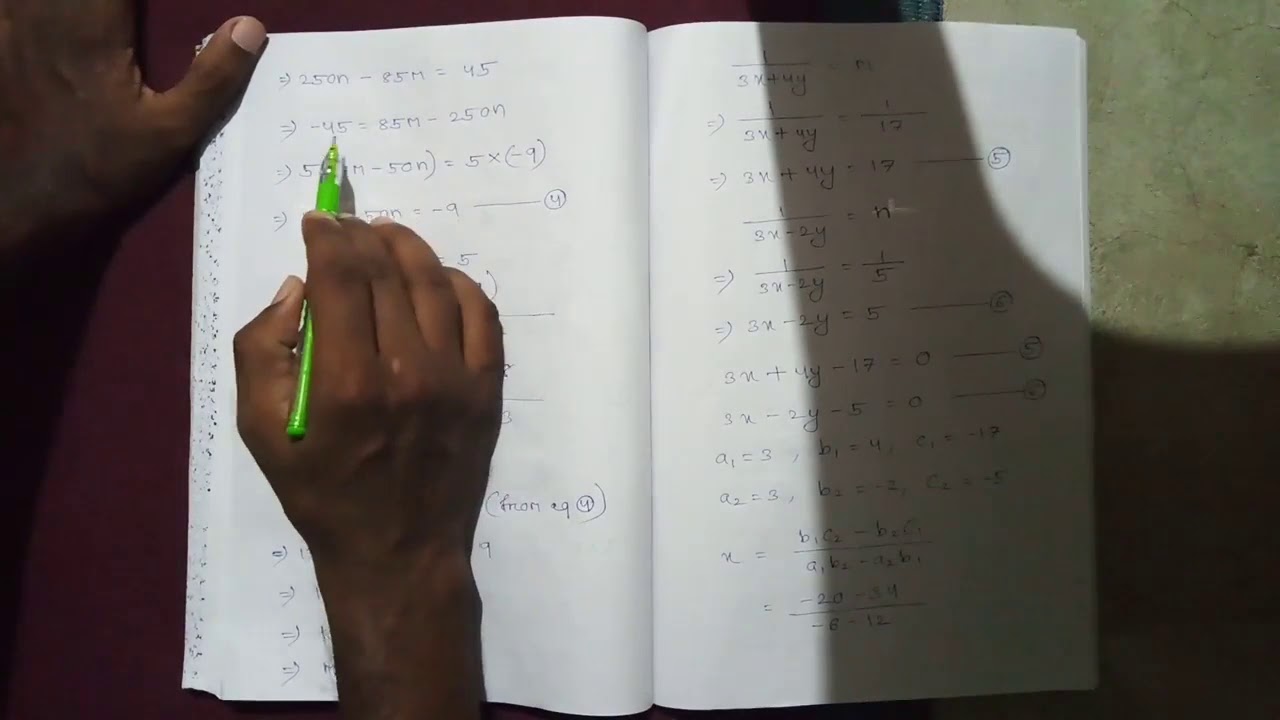 =) 250n - 85m = 45
=) -45 = 85m - 250n
=) 5 m - 50n) = 5 × (-9)
=) 50n = -9 ——— ④
= 5
)
3
(from eq ④)
=) 1 9
=)
=)
=)
1/(3x+4y) = m
=) 1/(3x+4y) = 1/17
=) 3x + 4y = 17 ——— ⑤
1/(3x-2y) = n
=) 1/(3x-2y) = 1/5
=) 3x - 2y = 5 ——— ⑥
3x + 4y - 17 = 0 ——— ⑤
3x - 2y - 5 = 0 ——— ⑥
a₁ = 3 , b₁ = 4, c₁ = -17
a₂ = 3, b₂ = -2, c₂ = -5
x = (b₁c₂ - b₂c₁)/(a₁b₂ - a₂b₁)
= (-20 - 34)/(-6 - 12)